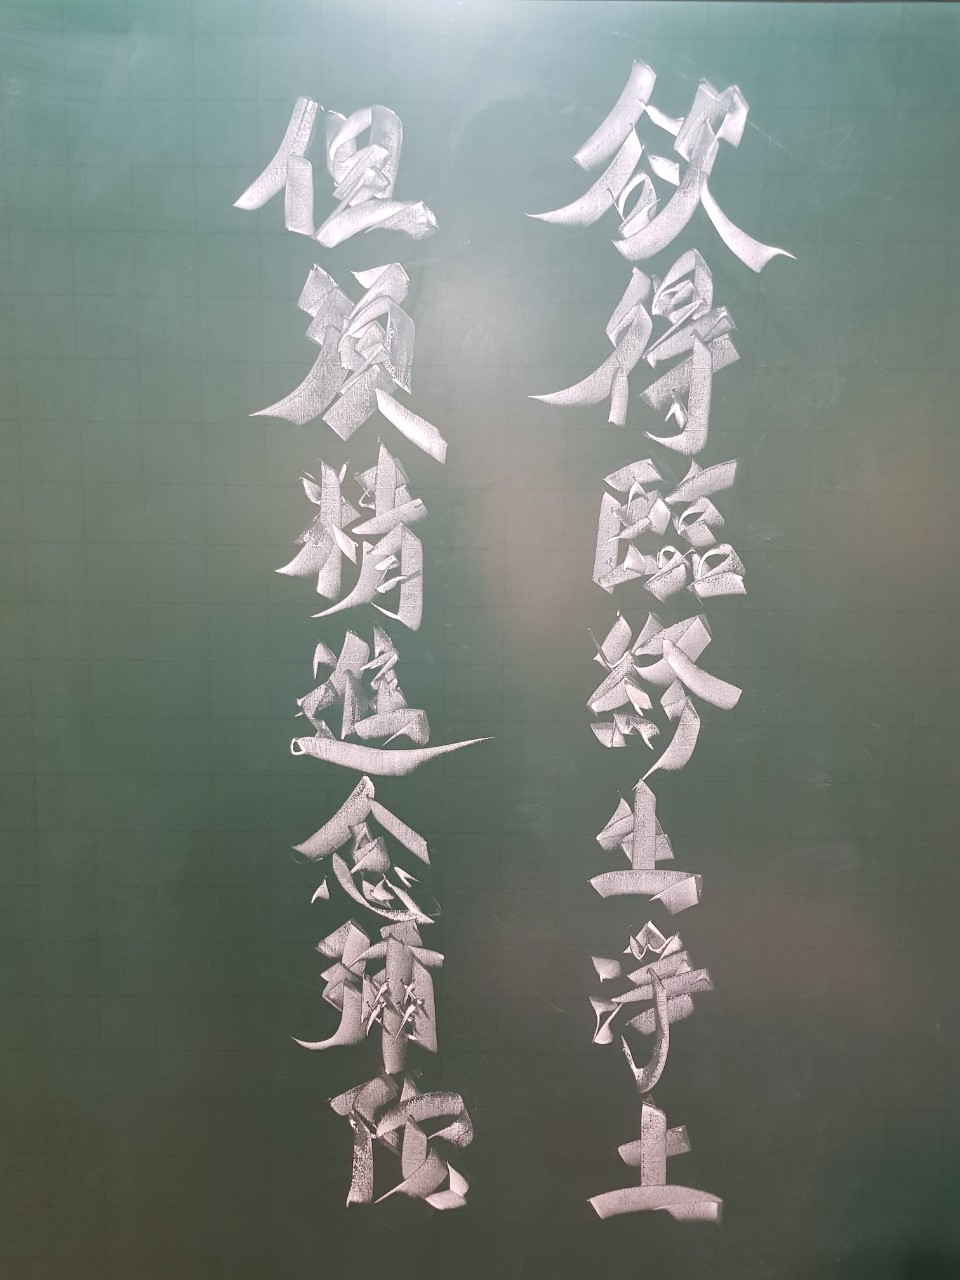 欲得臨終生淨土
但須精進念彌陀